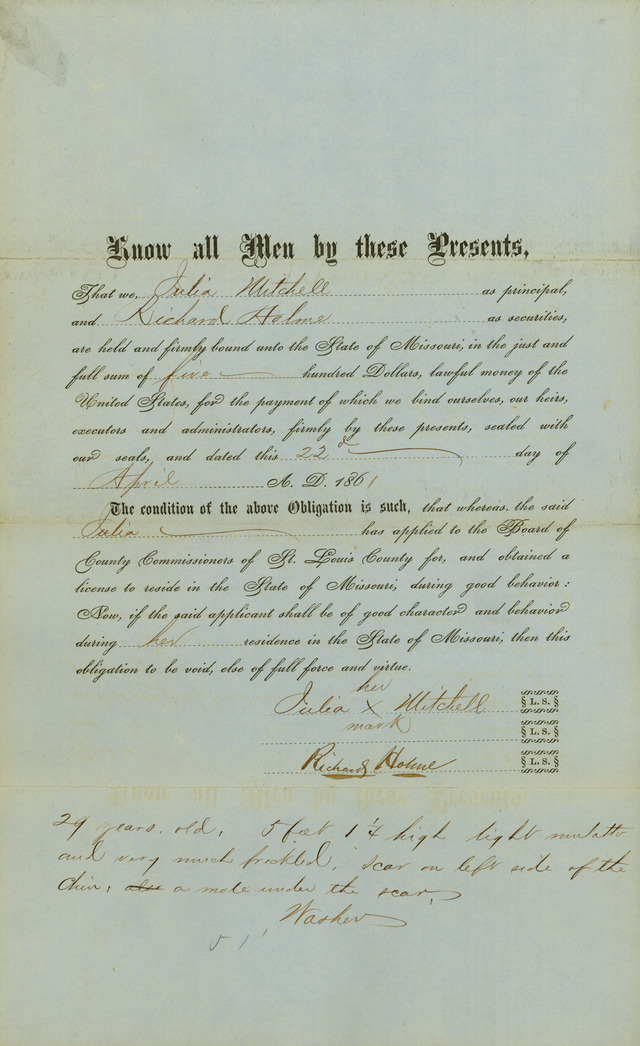 Know all Men by these Presents,
That we, Julia Mitchell as principal,
and Richard Holme as securities,
are held and firmly bound unto the State of Missouri, in the just and
full sum of five hundred Dollars, lawful money of the
United States, for the payment of which we bind ourselves, our heirs,
executors and administrators, firmly by these presents, sealed with
our seals, and dated this 22d day of
April A. D. 1861
The condition of the above Obligation is such, that whereas, the said
Julia has applied to the Board of
County Commissioners of St. Louis County for, and obtained a
license to reside in the State of Missouri, during good behavior:
Now, if the said applicant shall be of good character and behavior
during her residence in the State of Missouri, then this
obligation to be void, else of full force and virtue.
her
Julia X Mitchell L. S.
mark
L. S.
Richard Holme L. S.
29 years. old, 5 feet 1 1/4 high light mulatto
and very much freckled, scar on left side of the
chin, also a mole under the scar,
Washer